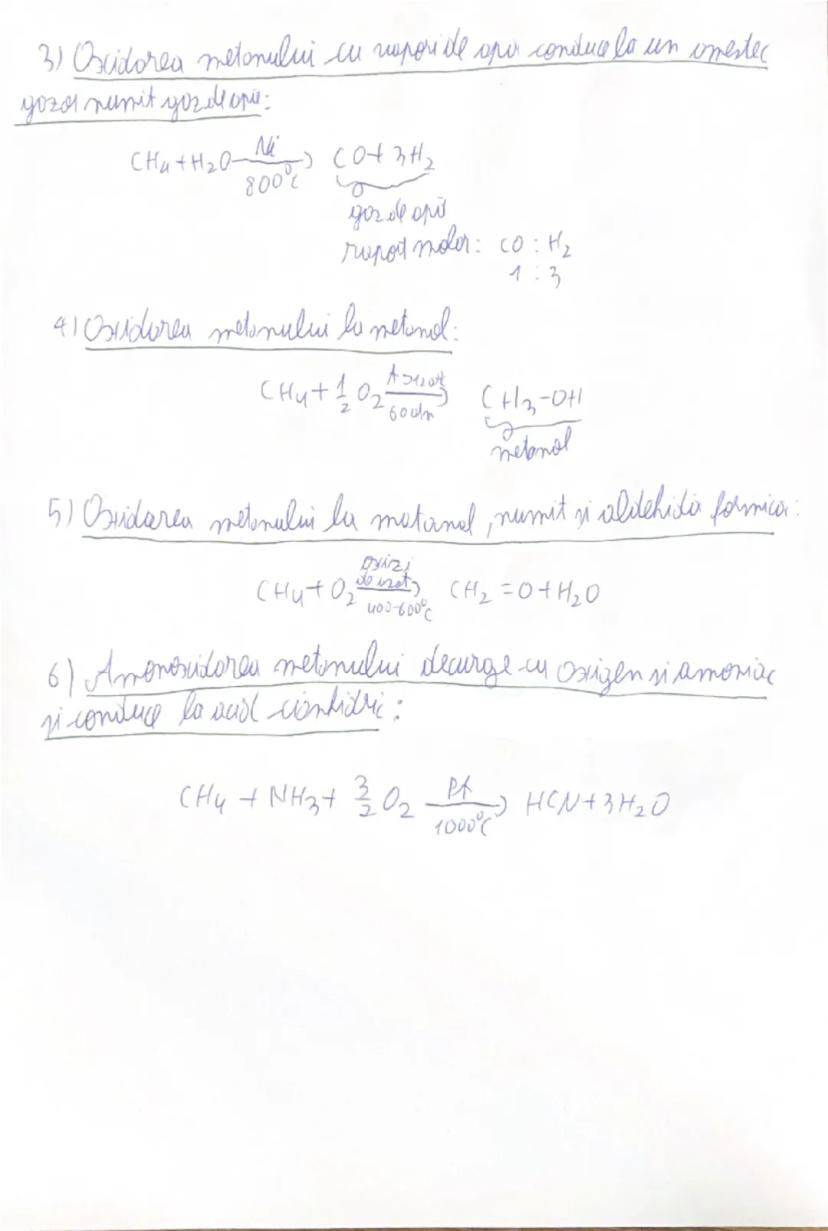 3) Oxidarea metanului cu vapori de apă conduce la un amestec
gazos numit gaz de apă:
CH4 + H2O —Ni/800°C→ CO + 3H2
gaz de apă
raport molar: CO : H2
1 : 3
4) Oxidarea metanului la metanol:
CH4 + 1/2 O2 —60 atm→ CH3-OH
metanol
5) Oxidarea metanului la metanal, numit și aldehidă formică:
CH4 + O2 —oxizi de azot/400-600°C→ CH2=O + H2O
6) Amonoxidarea metanului decurge cu oxigen și amoniac
și conduce la acid cianhidric:
CH4 + NH3 + 3/2 O2 —Pt/1000°C→ HCN + 3H2O